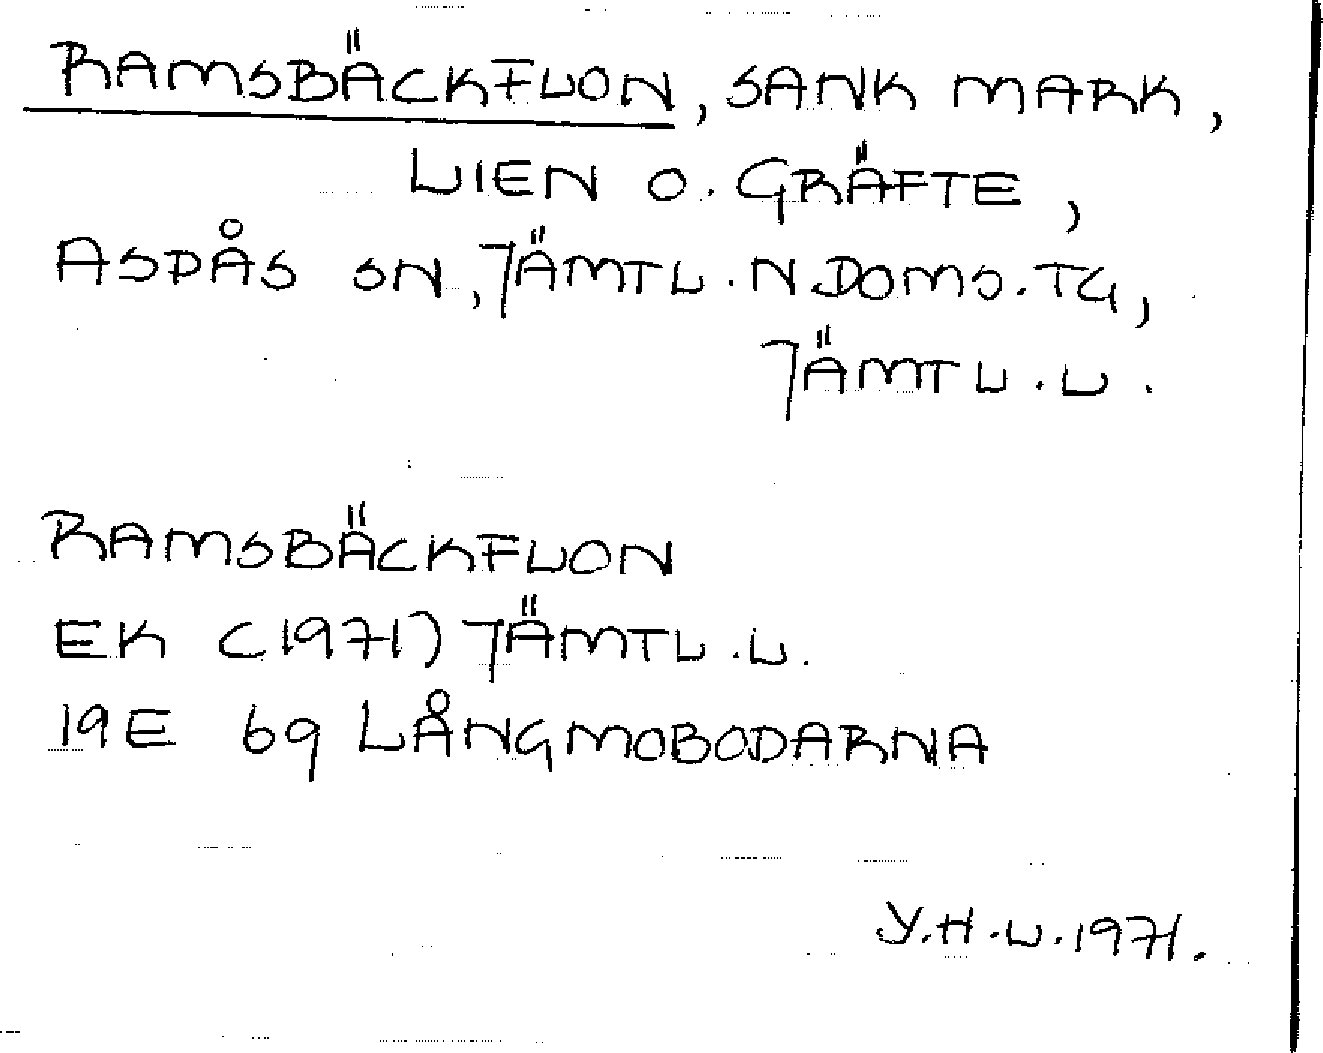 RAMSBÄCKFLON, SANK MARK,
LIEN O. GRÄFTE,
ASPÅS SN, JÄMTL. N. DOMS. TG,
JÄMTL. L.
RAMSBÄCKFLON
EK (1971) JÄMTL. L.
19E 69 LÅNGMOBODARNA
Y.H.L. 1971.